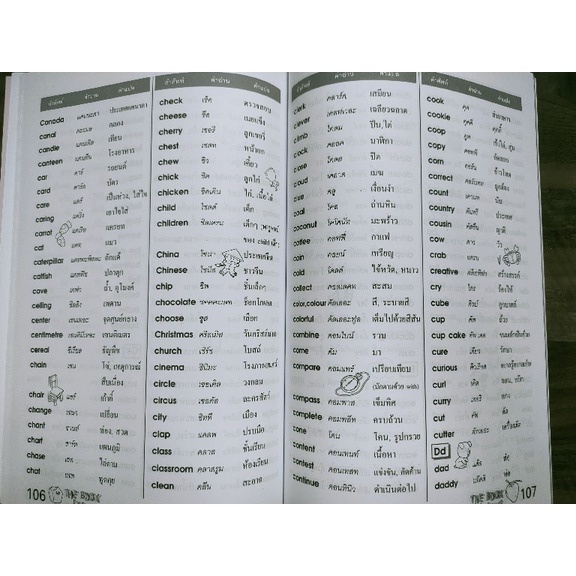 คำศัพท์ คำอ่าน คำแปล
Canada แคนนาดา ประเทศแคนาดา
canal คะแนล คลอง
candle แคนเดิล เทียน
canteen แคนทีน โรงอาหาร
car คาร์ รถยนต์
card คาร์ด บัตร
care แคร์ เป็นห่วง, ใส่ใจ
caring แคริง เอาใจใส่
carrot แครอท แครอท
cat แคท แมว
caterpillar ดักแด้
catfish แคทฟิช ปลาดุก
cave เคฟว ถ้ำ, อุโมงค์
ceiling ซีลิง เพดาน
center เซนเทอะ จุดศูนย์กลาง
centimetre เซนติเมตร
cereal ซีเรียล ธัญพืช
chain เชน โซ่, เหตุการณ์
สืบเนื่อง
chair แชร์ เก้าอี้
change เชนจ เปลี่ยน
chant ชานท์ ร้อง, สวด
chart ชาร์ท แผนภูมิ
chase เชส ไล่ตาม
chat แชท พูดคุย
106 THE BOOK
คำศัพท์ คำอ่าน คำแปล
check เช็ค ตรวจสอบ
cheese ชีส เนยแข็ง
cherry เชอรี่ ลูกเชอรี่
chest เชสท หน้าอก
chew ชิว เคี้ยว
chick ชิค ลูกไก่
chicken ชิคเคิน ไก่, เนื้อไก่
child ไชลด์ เด็ก
children ชิลเดรน เด็กๆ (พหูพจน์
ของ child)
China ไชนา ประเทศจีน
Chinese ไชนีส ชาวจีน
chip ชิพ ชิ้นเล็กๆ
chocolate ช็อกโกแลต
choose ชูส เลือก
Christmas คริสมัส วันคริสต์มาส
church เชิร์ช โบสถ์
cinema ซินีมะ โรงภาพยนตร์
circle เซอเคิล วงกลม
circus เซอคัส ละครสัตว์
city ซิตี เมือง
clap แคลพ ปรบมือ
class คลาส ชั้นเรียน
classroom คลาสรูม ห้องเรียน
clean คลีน สะอาด
คำศัพท์ คำอ่าน คำแปล
clerk คลาร์ค เสมียน
clever เคลฟเวอะ เฉลียวฉลาด
climb ไคลม ปีน, ไต่
clock คลอค นาฬิกา
close โคลส ปิด
cloud คลาวด เมฆ
clue คลู เงื่อนงำ
coal โคล ถ่านหิน
coconut โคโคนัท มะพร้าว
coffee คอฟฟี่ กาแฟ
coin คอยน์ เหรียญ
cold โคลด์ ไข้หวัด, หนาว
collect คอลเลคท สะสม
color,colour คัลเลอะ สี, ระบายสี
colorful คัลเลอะฟูล เต็มไปด้วยสีสัน
combine คอมไบน์ รวม
come คัม มา
compare คอมแพร์ เปรียบเทียบ
(มักตามด้วย with)
compass คอมพาส เข็มทิศ
complete คอมพลีท ครบถ้วน
cone โคน โคน, รูปกรวย
content คอนเทนท์ เนื้อหา
contest คอนเทสท แข่งขัน, คัดค้าน
continue คอนทินิว ดำเนินต่อไป
คำศัพท์ คำอ่าน คำแปล
cook คุค
cookie คุคกี้
coop คูพ
copy คอพี
corn คอร์น ข้าวโพด
correct ถูกต้อง
count เคานท นับ
country คันทรี ประเทศ
cousin
cow คาว วัว
crab แครบ ปู
creative สร้างสรรค์
cry ไคร ร้องไห้
cube คิวบ์ ลูกบาศก์
cup คัพ ถ้วย
cup cake คัพ เคค
cure เคียว รักษา
curious
curl เคิล
curry แกง
cut คัท ตัด
cutter
Dd
dad แด๊ด พ่อ
daddy แด๊ดดี พ่อ
THE BOOK 107